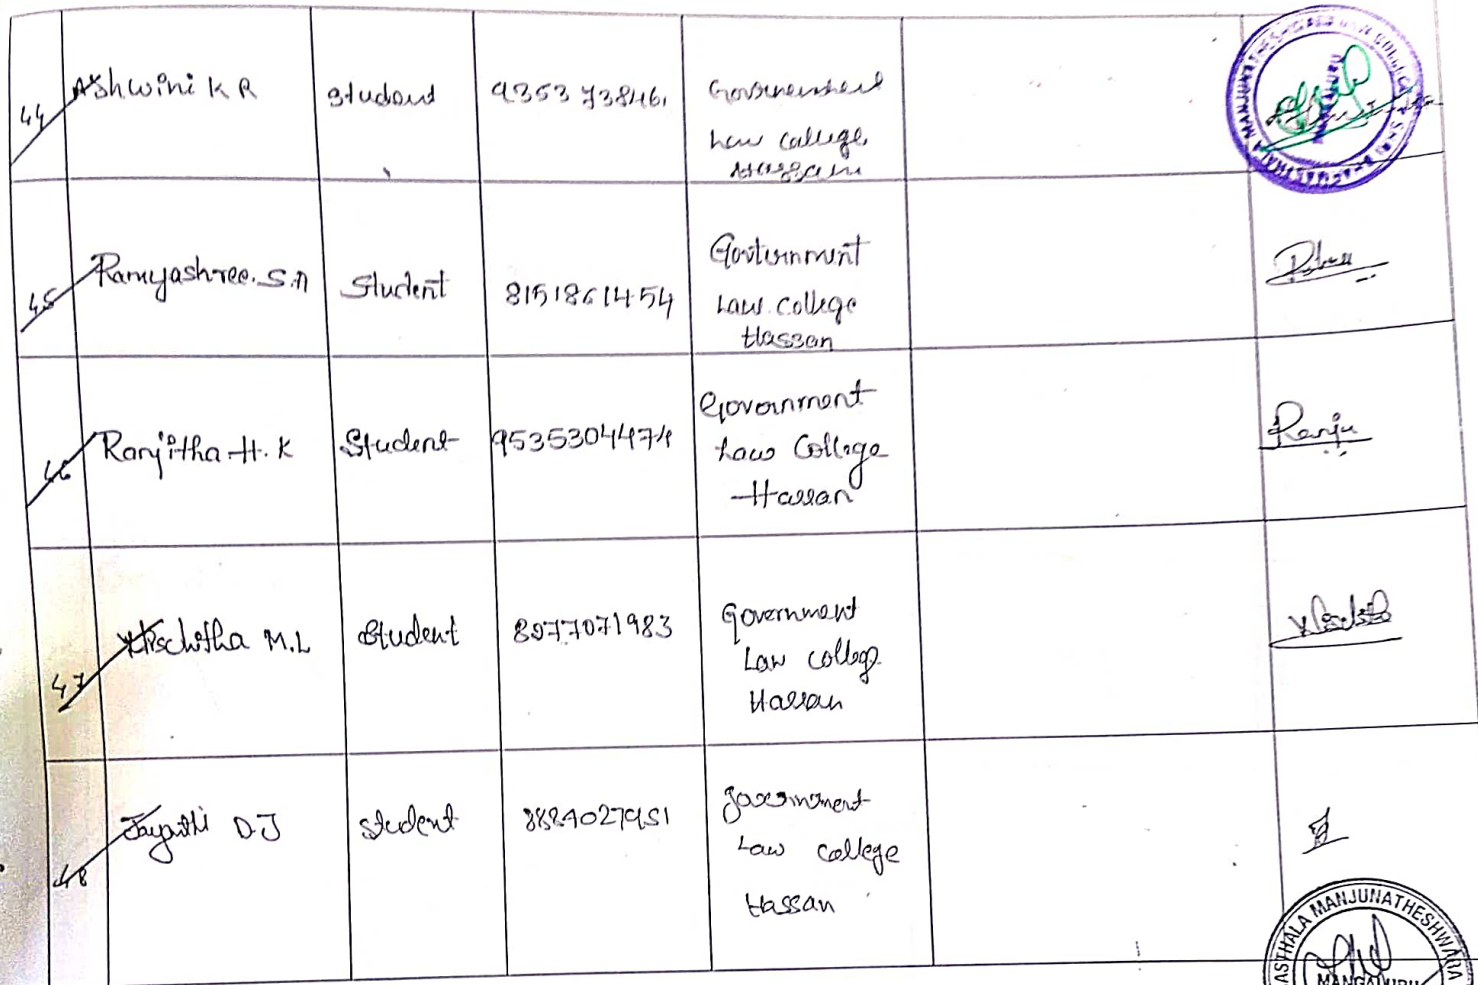 44 Ashwini K R Student 9353738461 Government
Law college
Hassan
45 Ramyashree. S.A Student 8151861454 Government
Law college
Hassan
46 Ranjitha H. K Student 9535304474 Government
Law College
Hassan
Ranju
47 Nischitha M.L Student 8977071983 Government
Law college
Hassan
48 Jayanthi D.J student government
Law college
Hassan
ASTHALA MANJUNATHESHWARA
MANGALURU